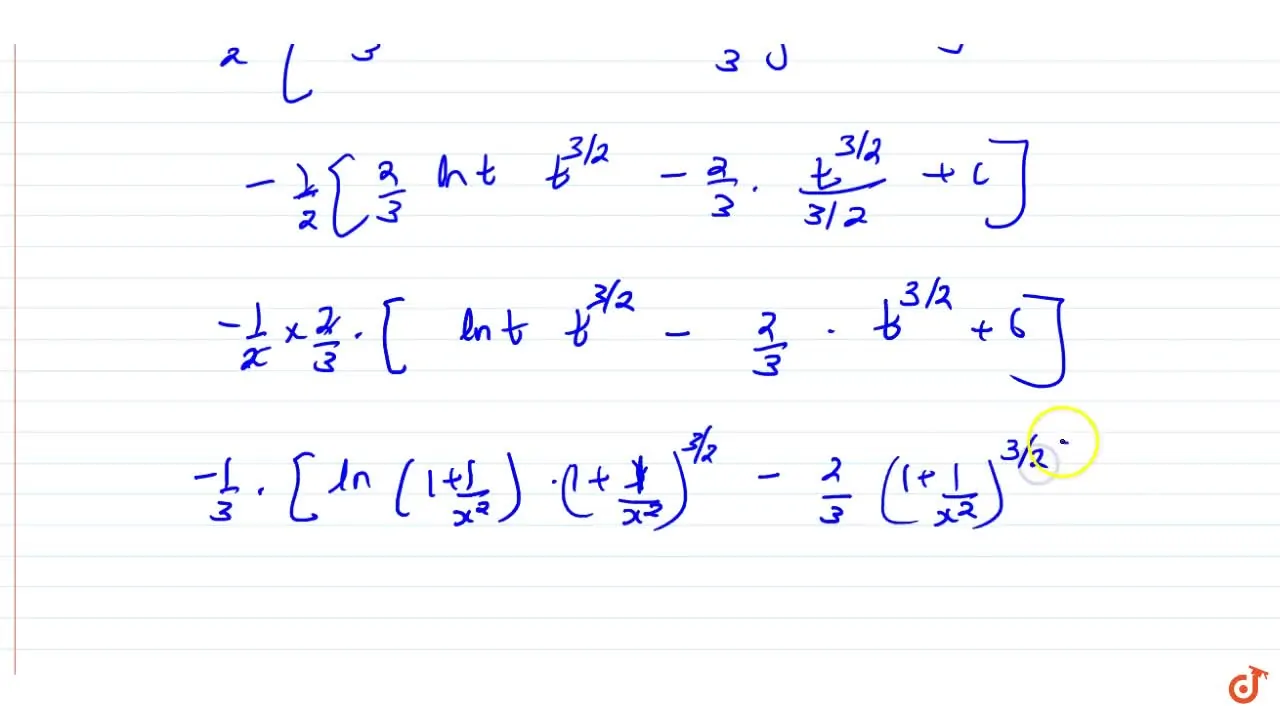 2 [ 3 3 ∫
-1/2 [ 2/3 ln t t^3/2 - 2/3 . t^3/2 / 3/2 + C ]
-1/2 × 2/3 . [ ln t t^3/2 - 2/3 . t^3/2 + C ]
-1/3 . [ ln (1+1/x^2) . (1+1/x^2)^3/2 - 2/3 (1+1/x^2)^3/2